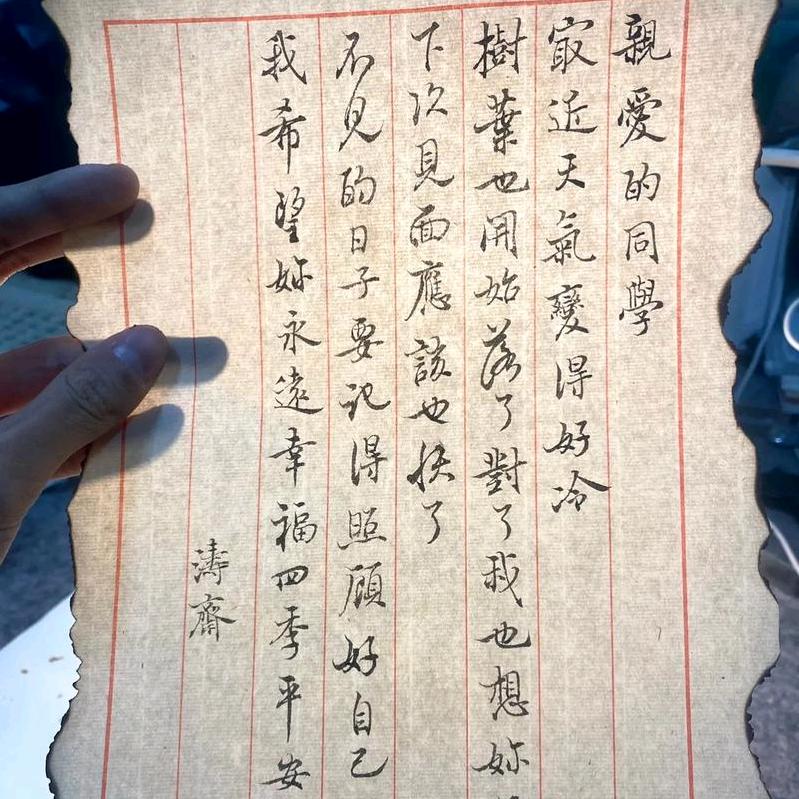 親愛的同學
冣近天氣變得好冷
樹葉也開始落了對了我也想妳
下次見面應該也快了
不見的日子要記得照顧好自己
我希望妳永遠幸福四季平安
濤齋